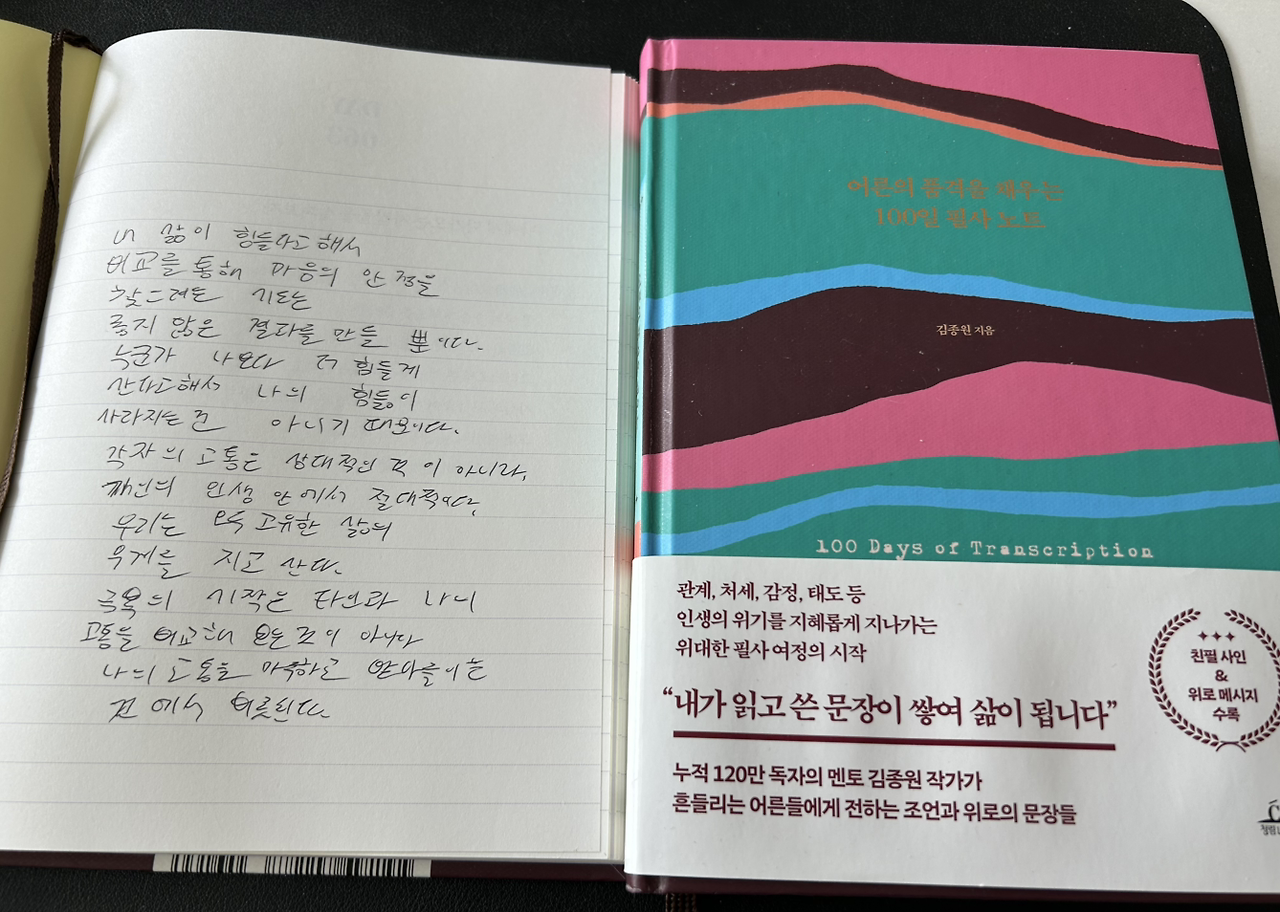 내 삶이 힘들다고 해서
비교를 통해 마음의 안정을
찾으려는 시도는
좋지 않은 결과를 만들 뿐이다.
누군가 나보다 더 힘들게
산다고해서 나의 힘듦이
사라지는 건 아니기 때문이다.
각자의 고통은 상대적인 것이 아니라,
자신의 인생 안에서 절대적이다.
우리는 모두 고유한 삶의
무게를 지고 산다.
극복의 시작은 타인과 나의
고통을 비교해 얻는 것이 아니라
나의 고통을 마주하고 받아들이는
것에서 비롯된다.
어른의 품격을 채우는
100일 필사 노트
김종원 지음
100 Days of Transcription
관계, 처세, 감정, 태도 등
인생의 위기를 지혜롭게 지나가는
위대한 필사 여정의 시작
“내가 읽고 쓴 문장이 쌓여 삶이 됩니다”
누적 120만 독자의 멘토 김종원 작가가
흔들리는 어른들에게 전하는 조언과 위로의 문장들
친필 사인
&
위로 메시지
수록